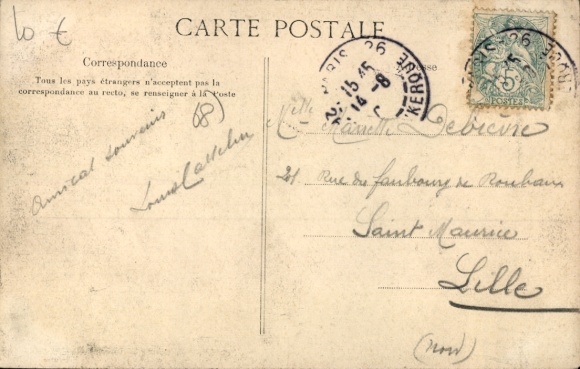 10 €
CARTE POSTALE
Correspondance
Tous les pays étrangers n'acceptent pas la
correspondance au recto, se renseigner à la Poste
(8)
Amical souvenir
Louis
PARIS 26
15 45
14 -8
POSTES
Melle Debievre
21 Rue du faubourg de Roubaix
Saint Maurice
Lille
(Nord)